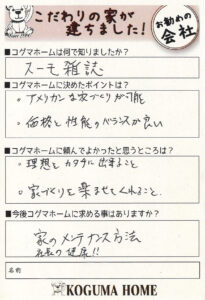 こだわりの家が
建ちました!
お勧めの
会社
■コグマホームは何で知りましたか?
スーモ雑誌
■コグマホームに決めたポイントは?
○アメリカンな家づくりが可能
○価格と性能のバランスが良い
■コグマホームに頼んでよかったと思うところは?
○理想をカタチに出来ること
○家づくりを楽ませてくれること。
■今後コグマホームに求める事はありますか?
家のメンテナンス方法
社長の健康!!
名前
KOGUMA HOME